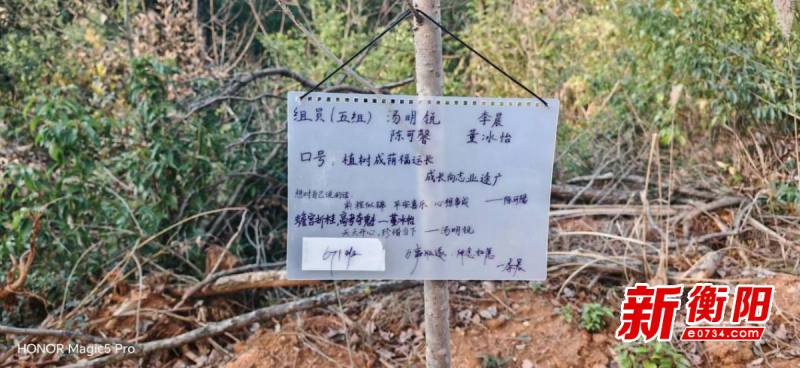 组员(五组) 汤明锐 李晨
陈可馨 董冰怡
口号:植树成荫福运长
成长向志业逢广
想对自己说的话:
前程似锦 平安喜乐 心想事成 ——陈可馨
蟾宫折桂,高考夺魁—董冰怡
天天开心,珍惜当下 —汤明锐
671班
万事顺遂,
—李晨
新衡阳
e0734.com
HONOR Magic5 Pro